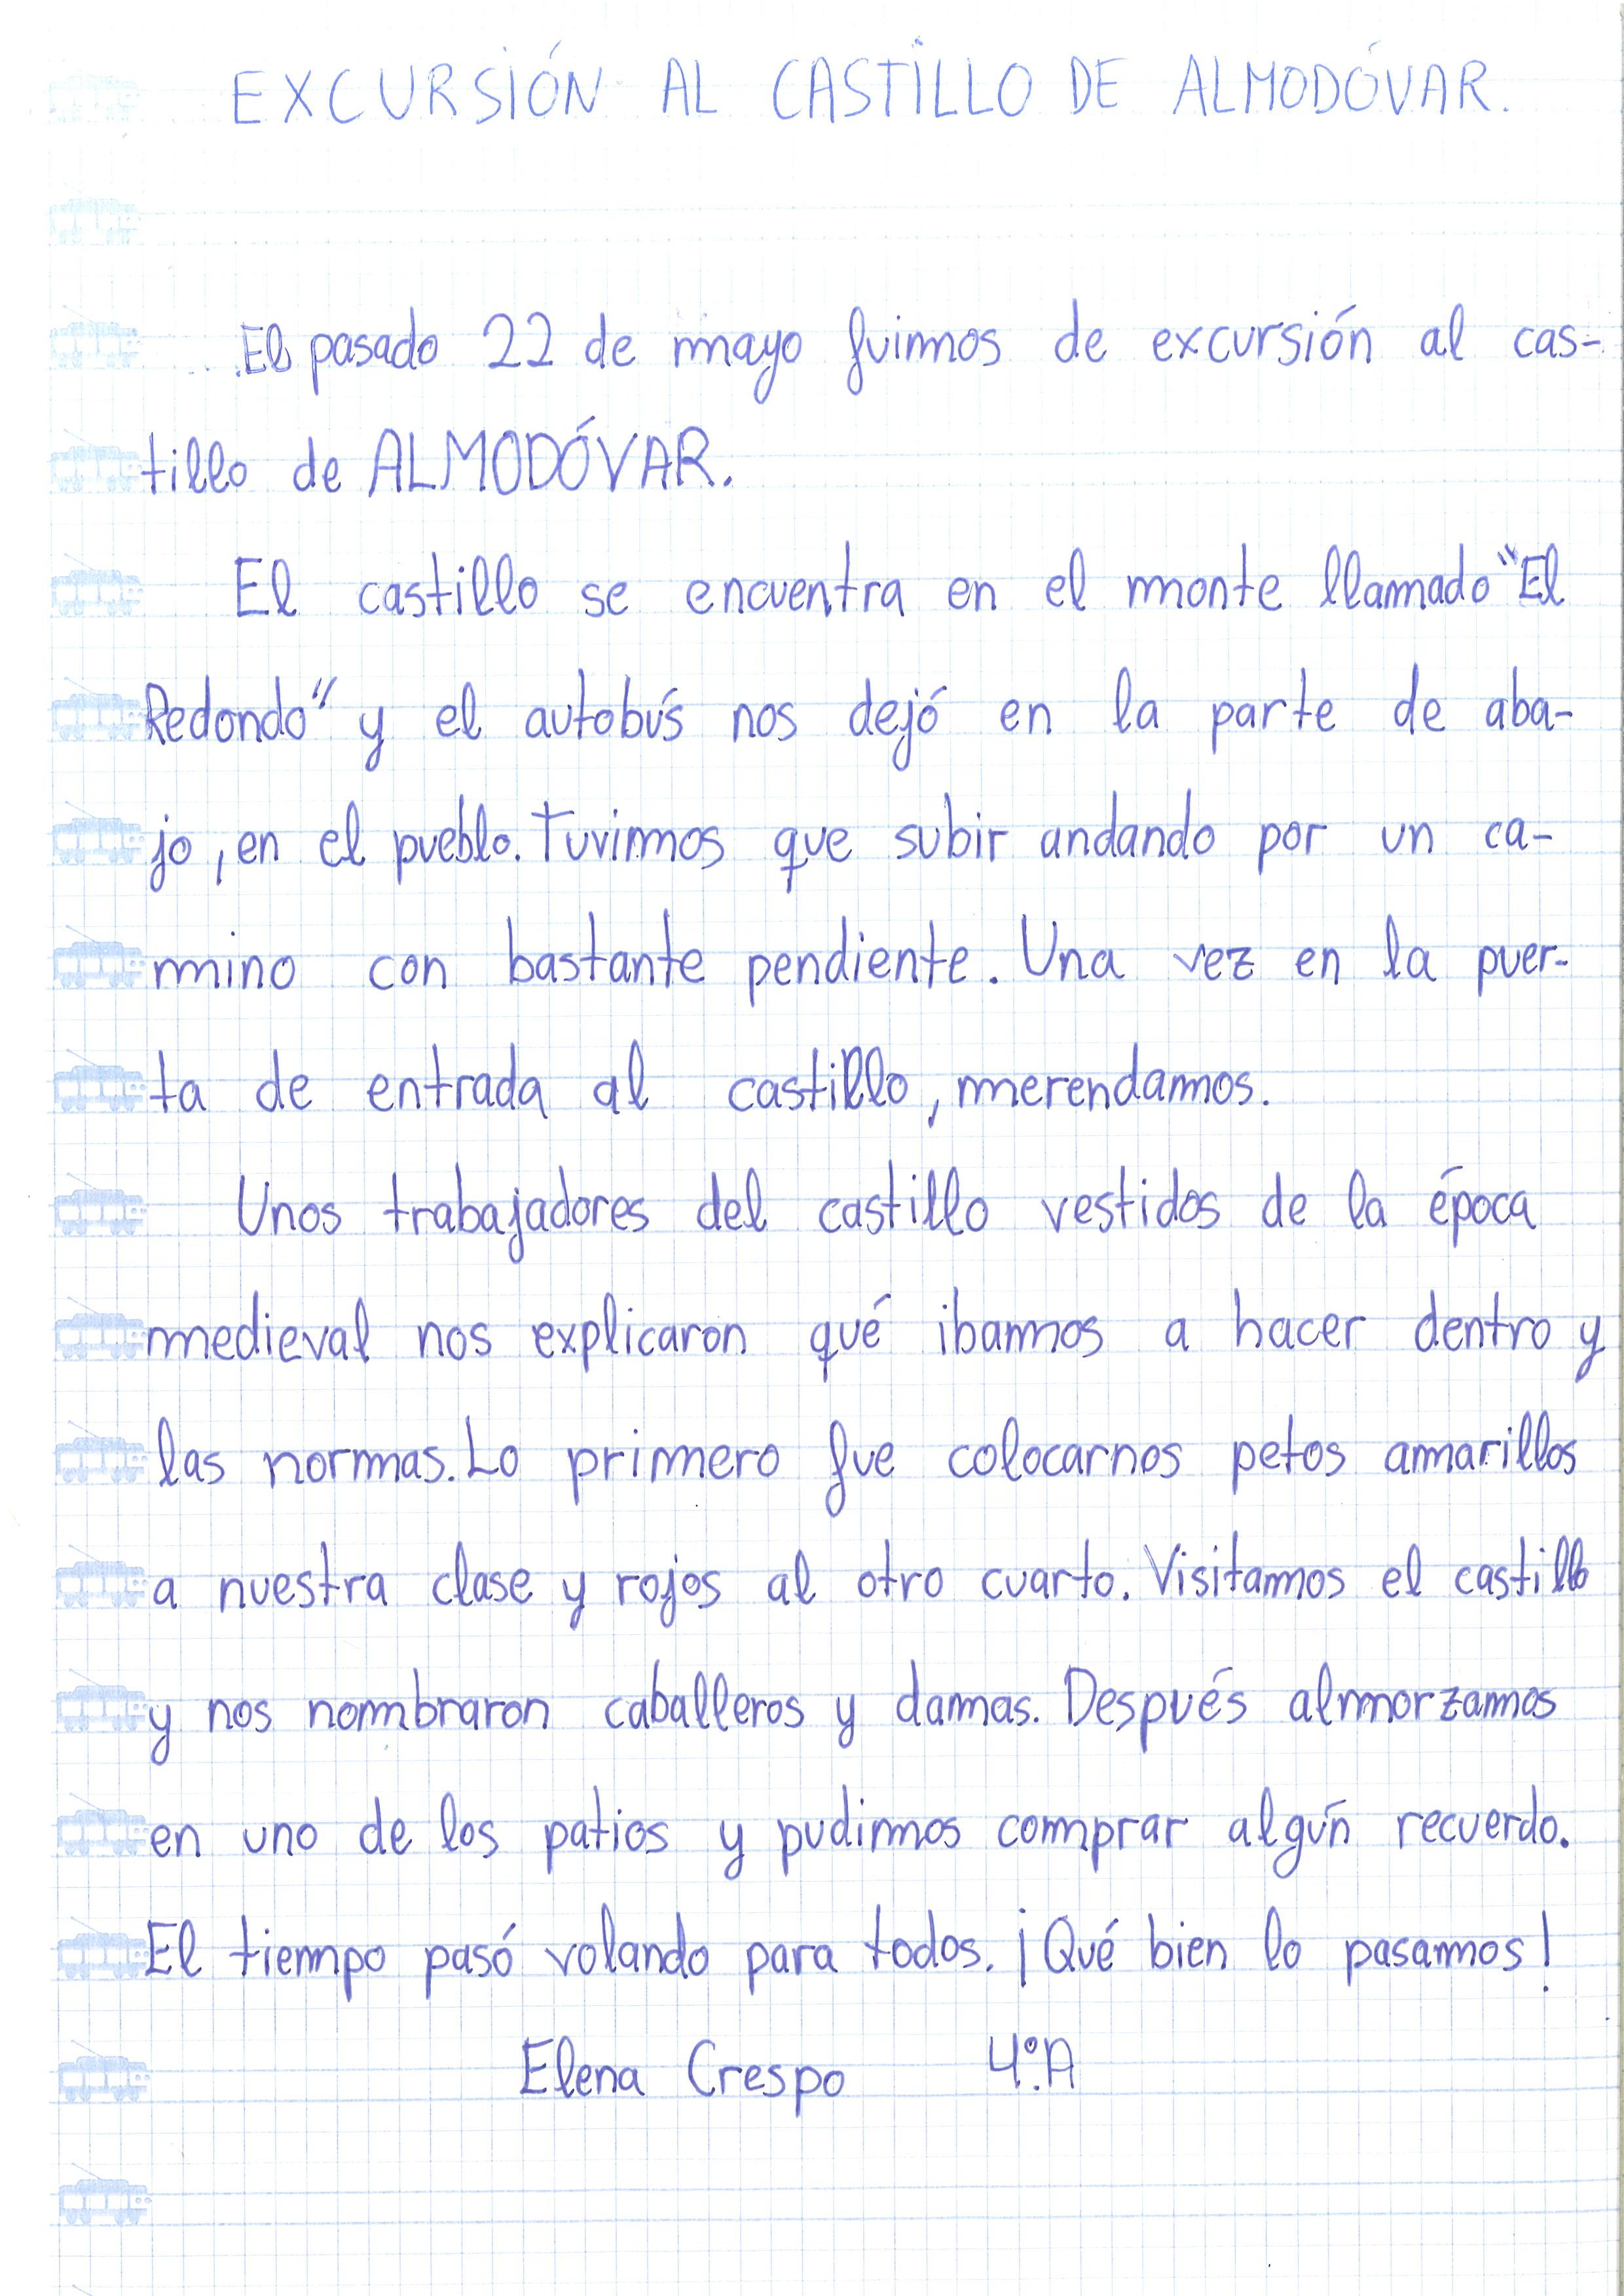 EXCURSIÓN AL CASTILLO DE ALMODÓVAR.
El pasado 22 de mayo fuimos de excursión al cas-
tillo de ALMODÓVAR.
El castillo se encuentra en el monte llamado "El
Redondo" y el autobús nos dejó en la parte de aba-
jo, en el pueblo. Tuvimos que subir andando por un ca-
mino con bastante pendiente. Una vez en la puer-
ta de entrada al castillo, merendamos.
Unos trabajadores del castillo vestidos de la época
medieval nos explicaron qué ibamos a hacer dentro y
las normas. Lo primero fue colocarnos petos amarillos
a nuestra clase y rojos al otro cuarto. Visitamos el castillo
y nos nombraron caballeros y damas. Después almorzamos
en uno de los patios y pudimos comprar algún recuerdo.
El tiempo pasó volando para todos. ¡Qué bien lo pasamos!
Elena Crespo 4.º A